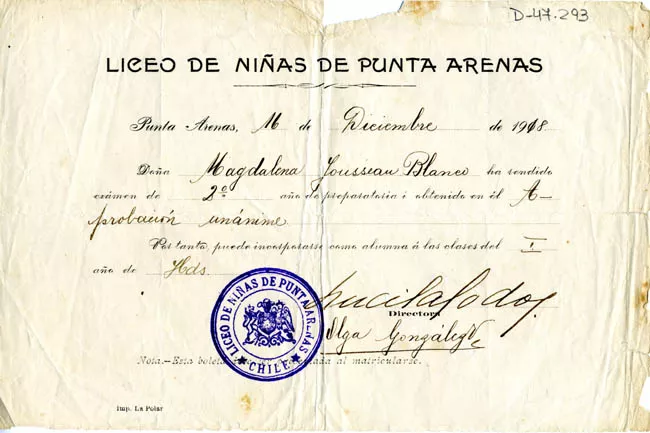 D-47.293
LICEO DE NIÑAS DE PUNTA ARENAS
Punta Arenas, 16 de Diciembre de 1918
Doña Magdalena Jousseau Blanco ha rendido
exámen de 2º año de preparatoria i obtenido en él A-
probación unánime
Por tanto, puede incorporarse como alumna á las clases del I
año de Hds.
LICEO DE NIÑAS DE PUNTA ARENAS
CHILE
Lucila Godoy
Directora
Olga González
Nota.—Esta boleta al matricularse.
Imp. La Polar